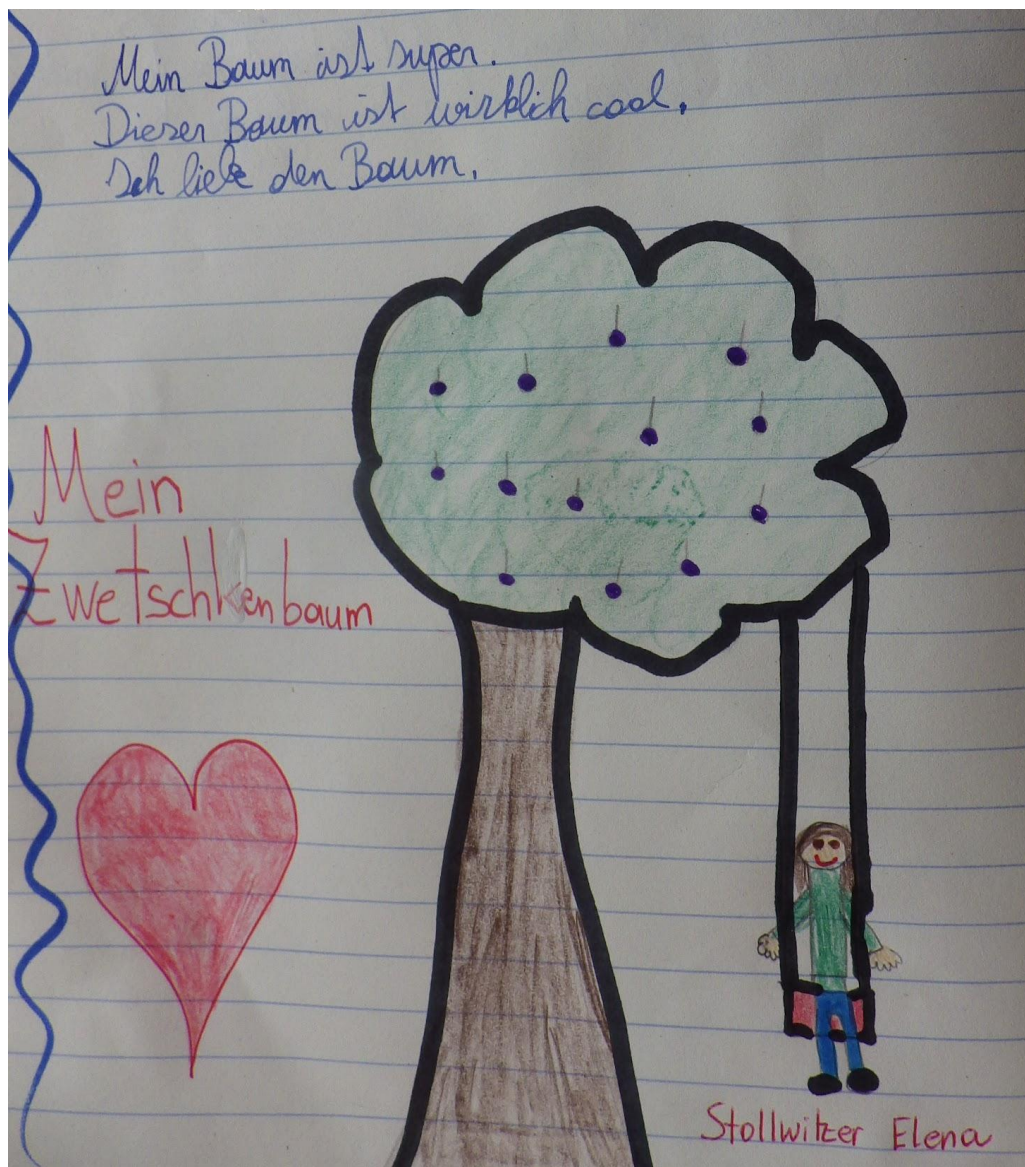 Mein Baum ist super.
Dieser Baum ist wirklich cool.
Ich liebe den Baum.
Mein
Zwetschkenbaum
Stollwitzer Elena